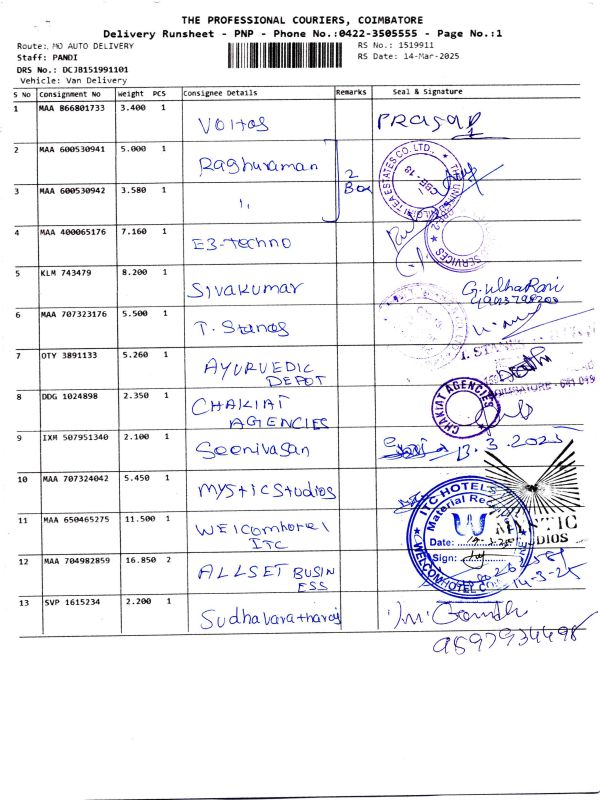 THE PROFESSIONAL COURIERS, COIMBATORE
Delivery Runsheet - PNP - Phone No.:0422-3505555 - Page No.:1
Route: MO AUTO DELIVERY
RS No.: 1519911
Staff: PANDI
RS Date: 14-Mar-2025
DRS No.: DCJB151991101
Vehicle: Van Delivery
S No Consignment No Weight PCS Consignee Details Remarks Seal & Signature
1 MAA 866801733 3.400 1 Voltas PRASAD
2 MAA 600530941 5.000 1 Raghuraman 2 Box
3 MAA 600530942 3.580 1 ,,
4 MAA 400065176 7.160 1 E3-Techno
SERVICES
5 KLM 743479 8.200 1 Sivakumar
6 MAA 707323176 5.500 1 T. Stanes
7 OTY 3891133 5.260 1 AYURVEDIC
DEPOT
8 DDG 1024898 2.350 1 CHAKIAT
AGENCIES
CHAKIAT AGENCIES
9 IXM 507951340 2.100 1 Seenivasan 13.3.2025
10 MAA 707324042 5.450 1 Mystic Studios
11 MAA 650465275 11.500 1 Welcomhotel
ITC
ITC HOTELS
Date:
Sign:
12 MAA 704982859 16.850 2 ALLSET BUSIN
ESS
14-3-25
13 SVP 1615234 2.200 1 Sudhavaratharaj
9597934498